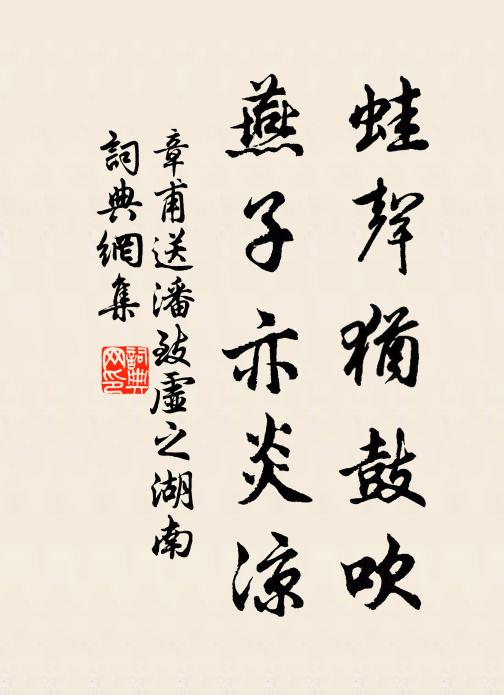 蛙聲猶鼓吹
燕子亦炎涼
章甫送潘致虛之湖南
詞典網集
詞典网印